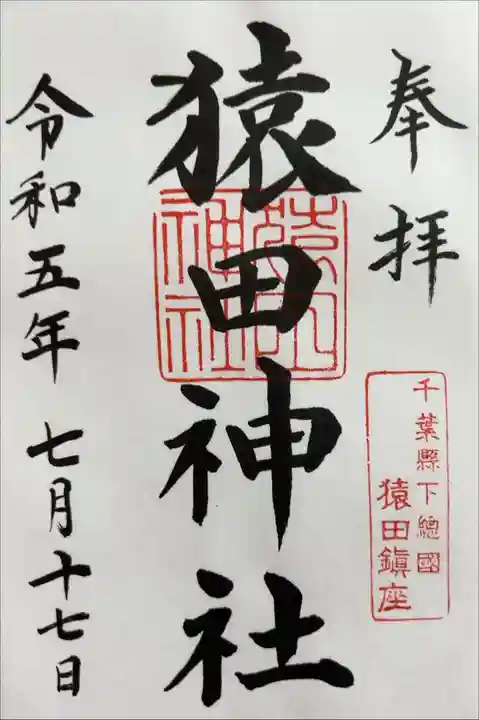 奉拝
千葉縣下總國
猿田鎭座
猿田神社
猿田神社
令和五年 七月十七日